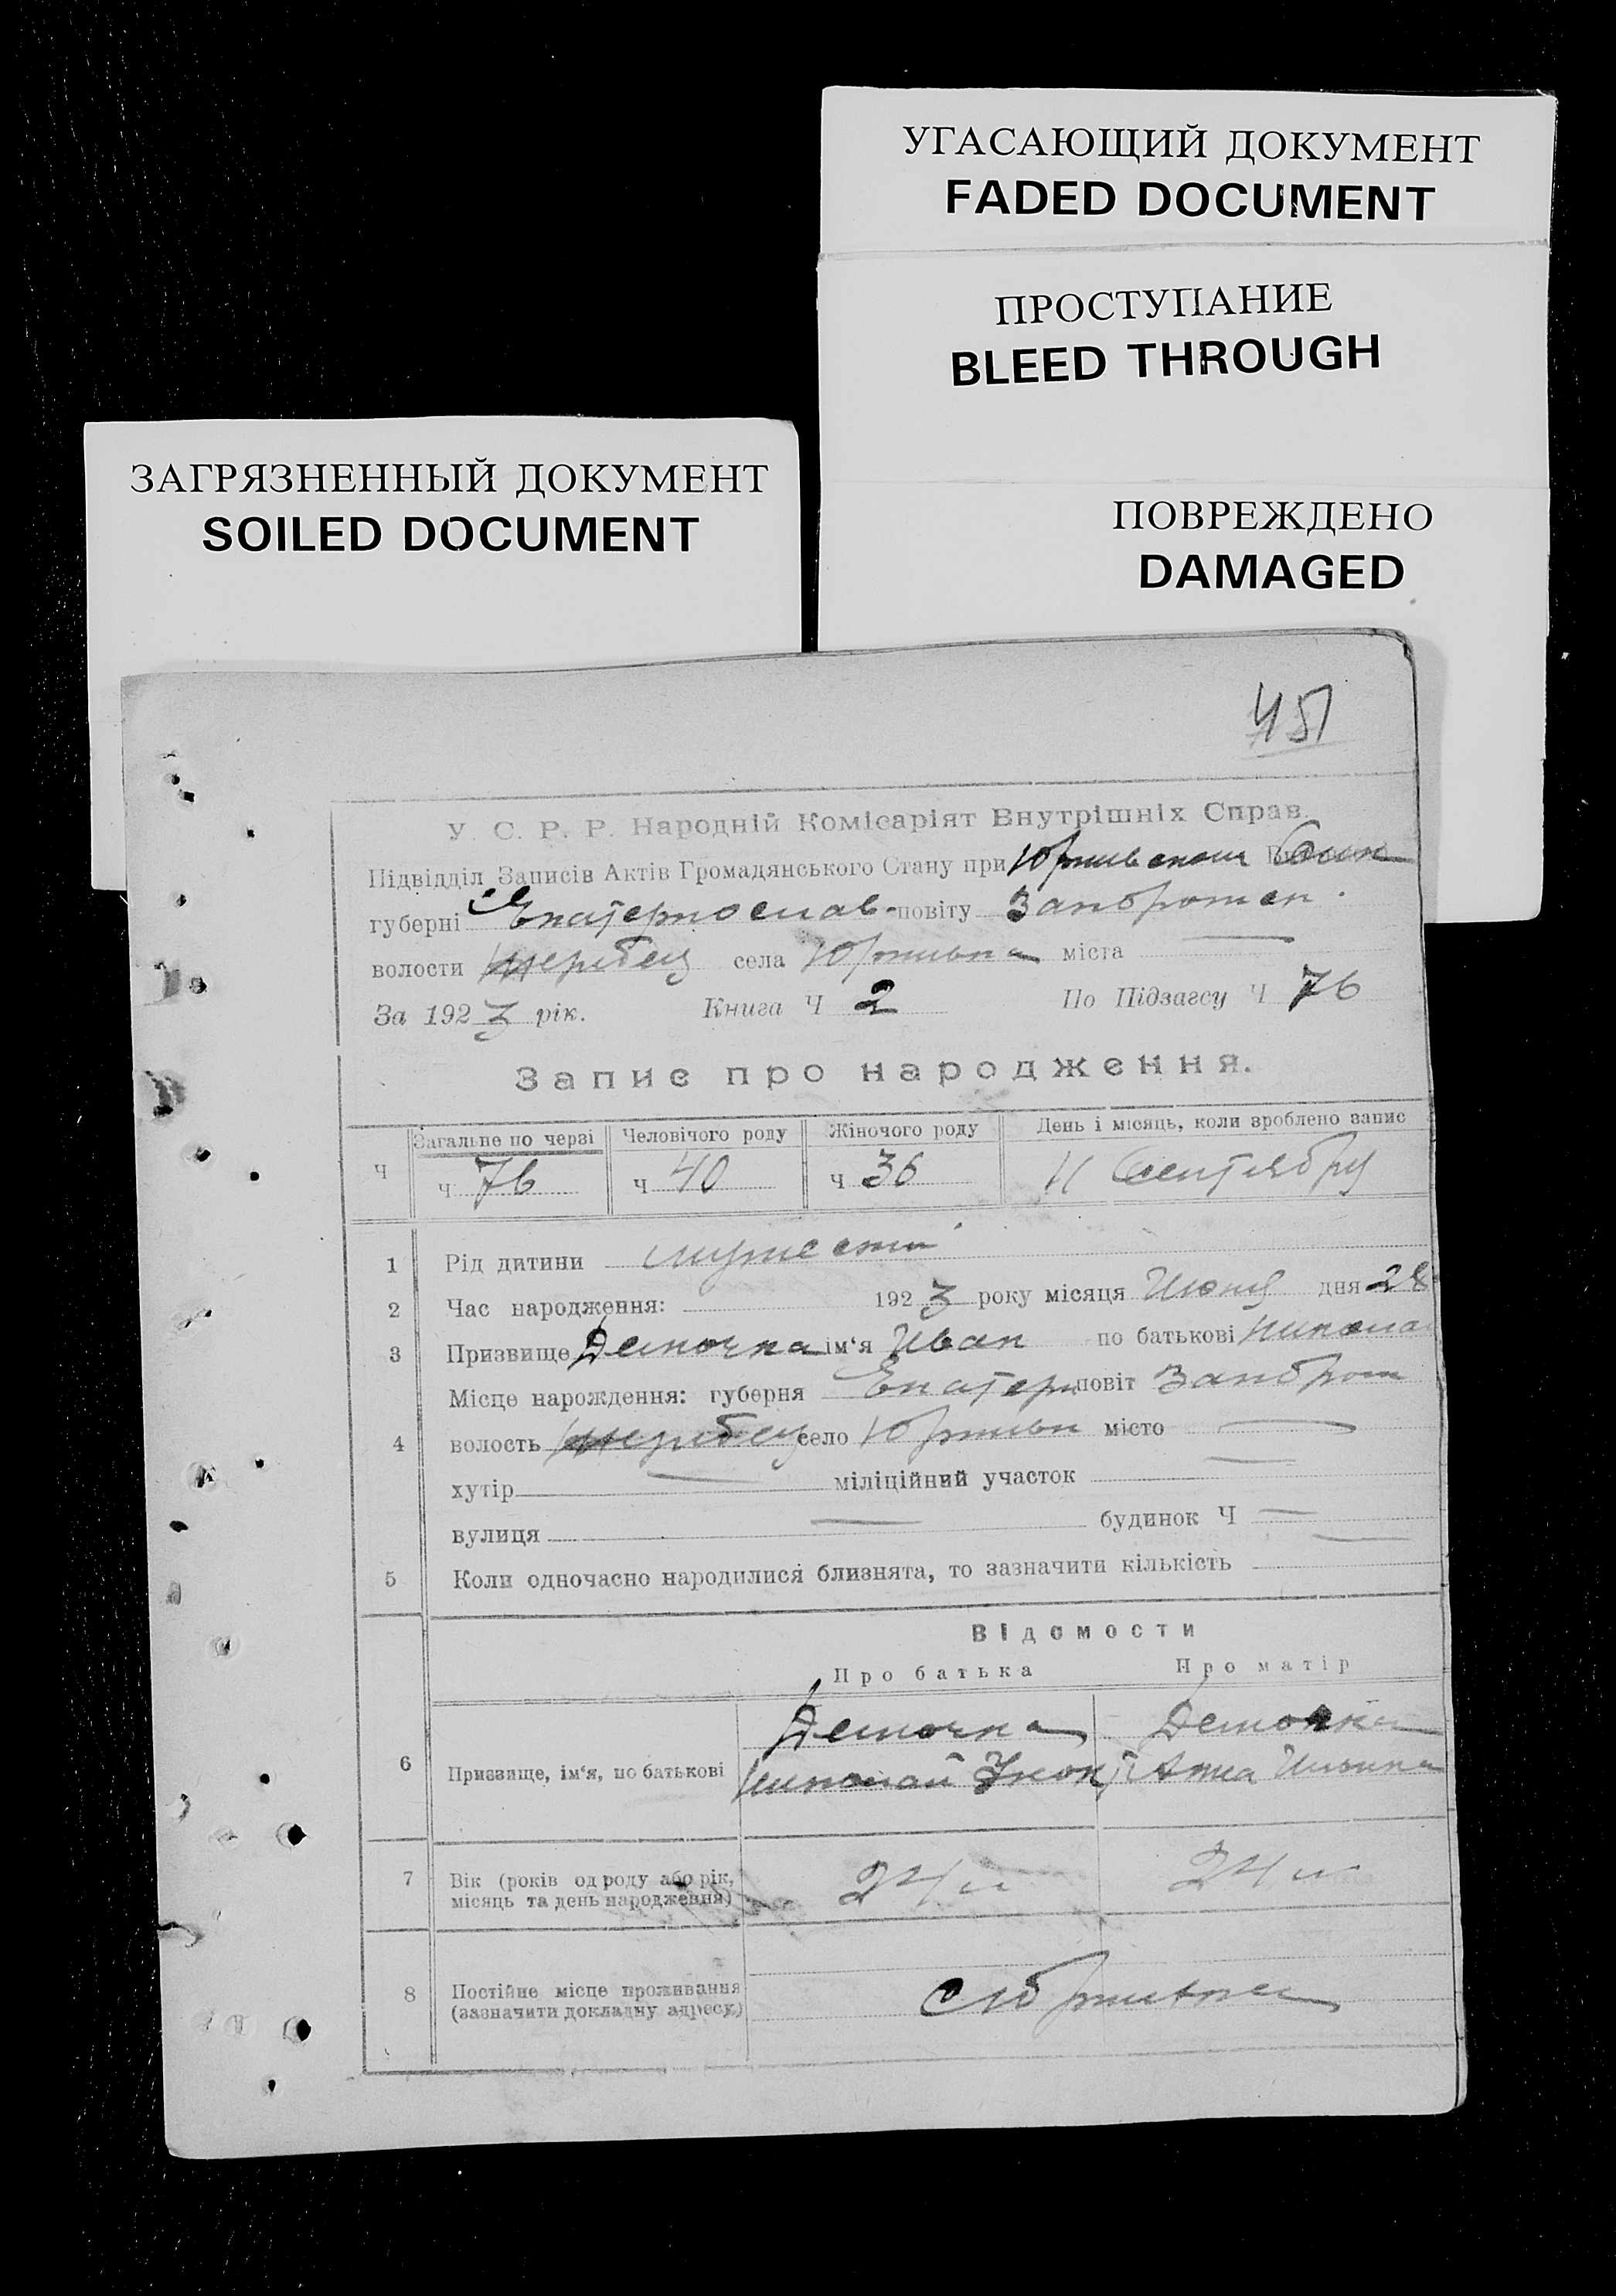 УГАСАЮЩИЙ ДОКУМЕНТ
FADED DOCUMENT
ПРОСТУПАНИЕ
BLEED THROUGH
ЗАГРЯЗНЕННЫЙ ДОКУМЕНТ
SOILED DOCUMENT
ПОВРЕЖДЕНО
DAMAGED
451
У. С. Р. Р. Народній Комісаріят Внутрішніх Справ.
Підвідділ Записів Актів Громадянського Стану при
губерні Екатеринослав. повіту
волости Жеребец села Юрківка міста —
За 1923 рік. Книга Ч 2 По Підзагсу Ч 76
Запис про народження.
Загальне по черзі Человічого роду Жіночого роду День і місяць, коли зроблено запис
Ч ч 76 ч 40 ч 36 11 Сентября
1 Рід дитини мужской
2 Час народження: 1923 року місяця дня 28
3 Призвище Демочка ім‘я Иван по батькові Никола
Місце нарождення: губерня Екатер повіт
4 волость Жеребец село Юрківк місто —
хутір — міліційний участок —
вулиця — будинок Ч —
5 Коли одночасно народилися близнята, то зазначити кількість —
Відомости
Про батька Про матір
Демочка Демочка
6 Призвище, ім‘я, по батькові Николай Анна
7 Вік (років од роду або рік, 24 24
місяць та день народження)
8 Постійне місце проживання
(зазначити докладну адресу) с Юрківка